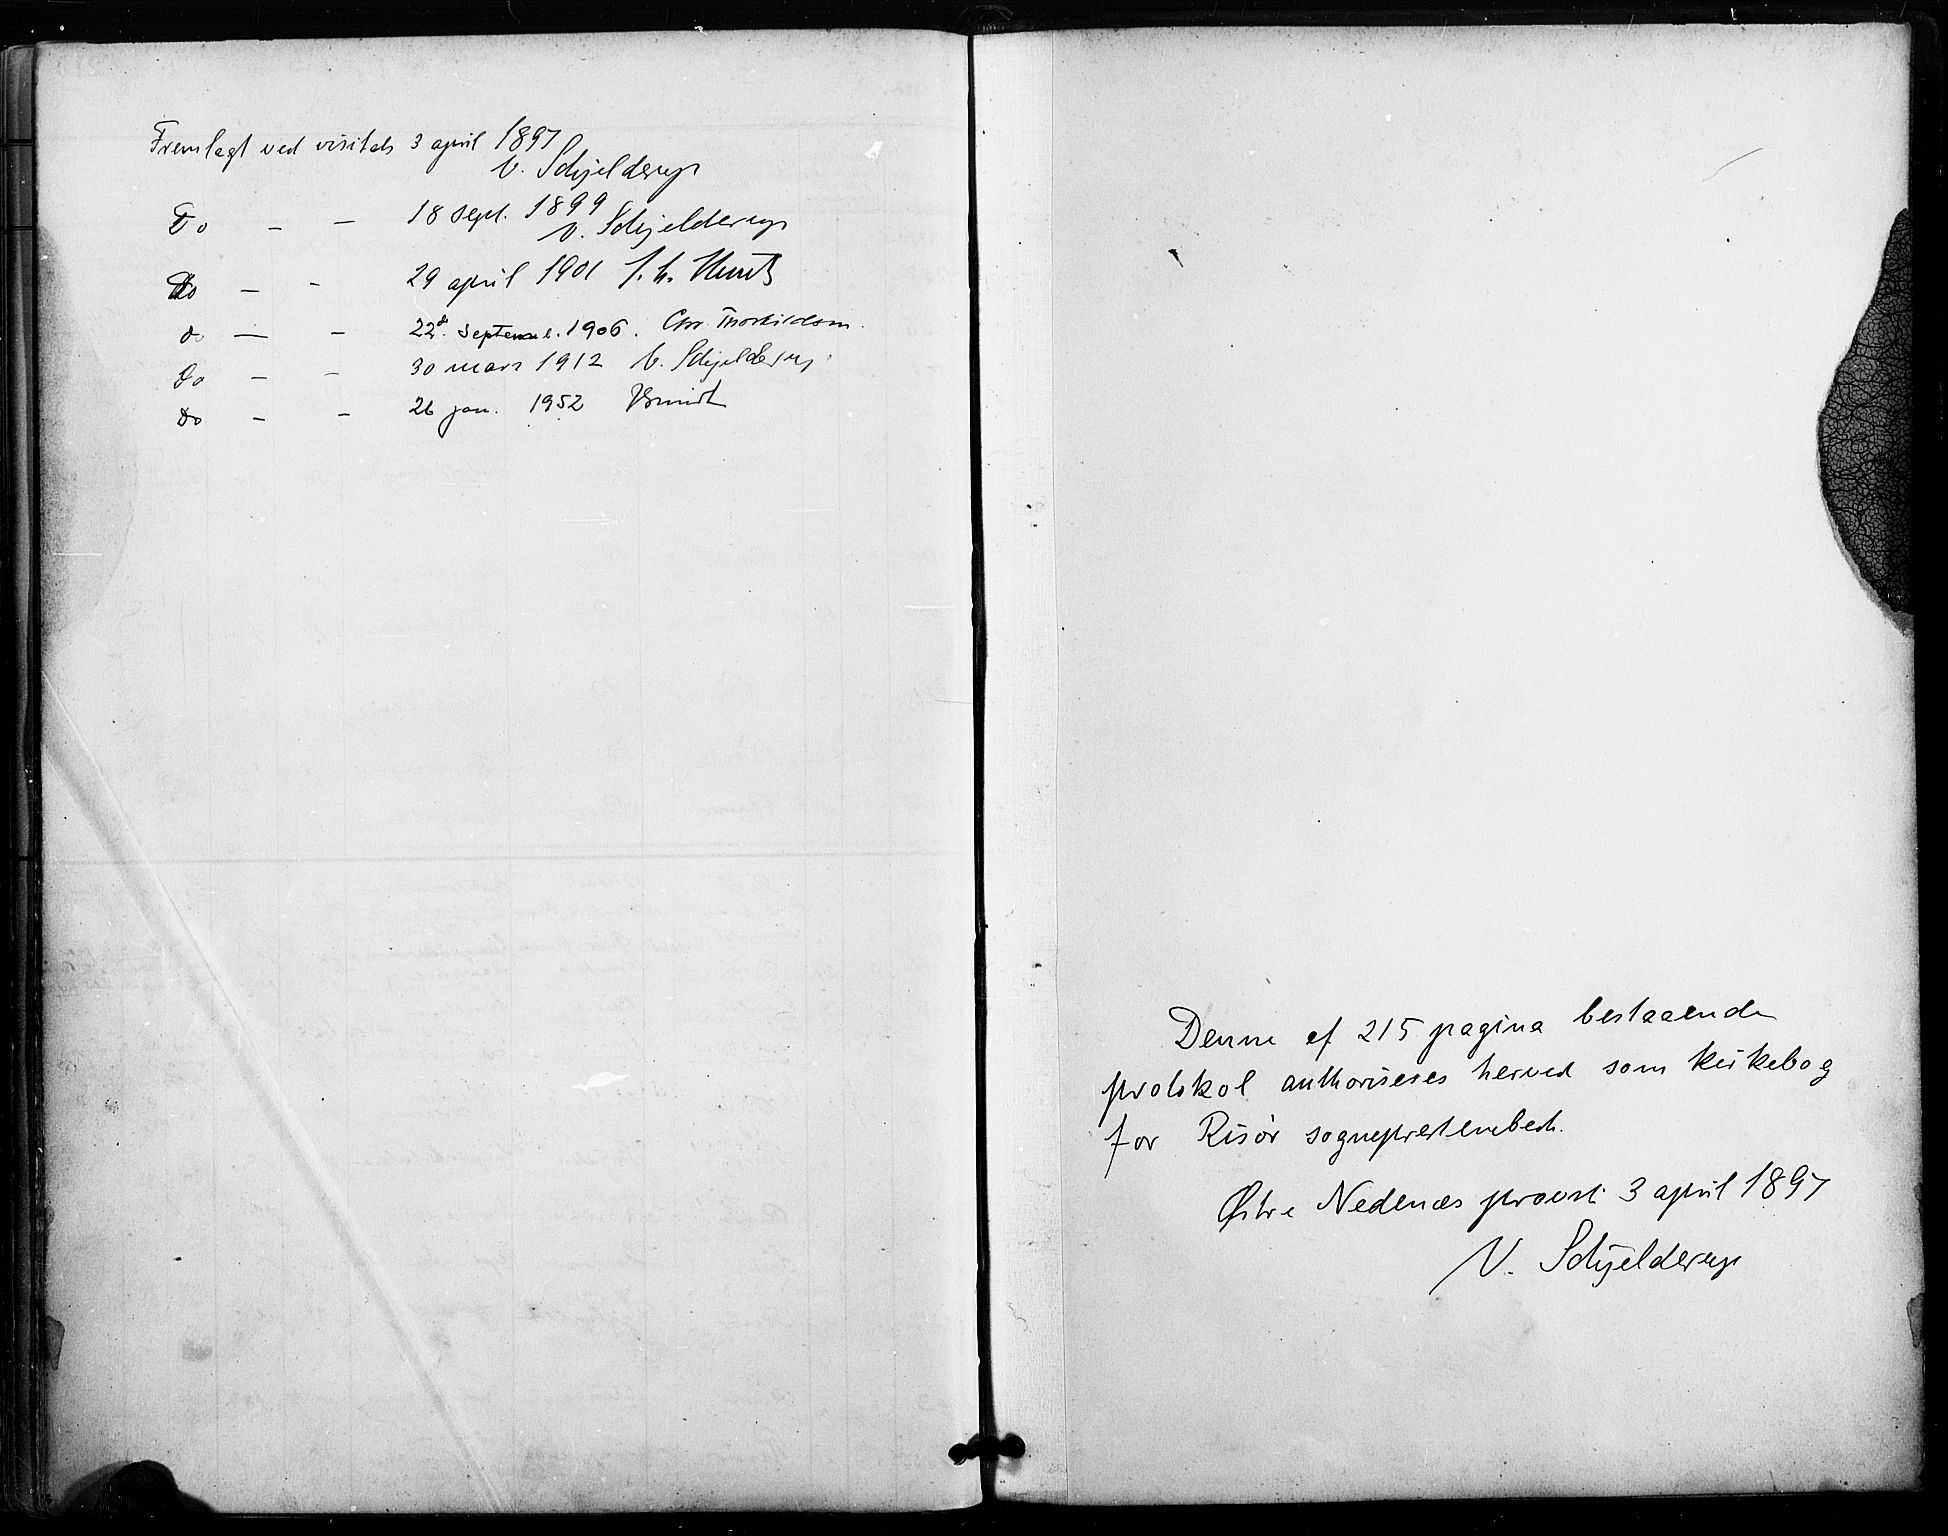 Fremlagt ved visitats 3 april 1897
V. Schjelderup
Do — — 18 sept. 1899
V. Schjelderup
Do — — 29 april 1901
do — — 22de September 1906. Chr. Thorkildsen.
Do — — 30 mars 1912 V. Schjelderup
do — — 26 jan. 1952
Denne af 215 pagina bestaaende
protokol authoriseres herved som kirkebog
for Risør sogneprestembede.
Østre Nedenæs provsti 3 april 1897
V. Schjelderup